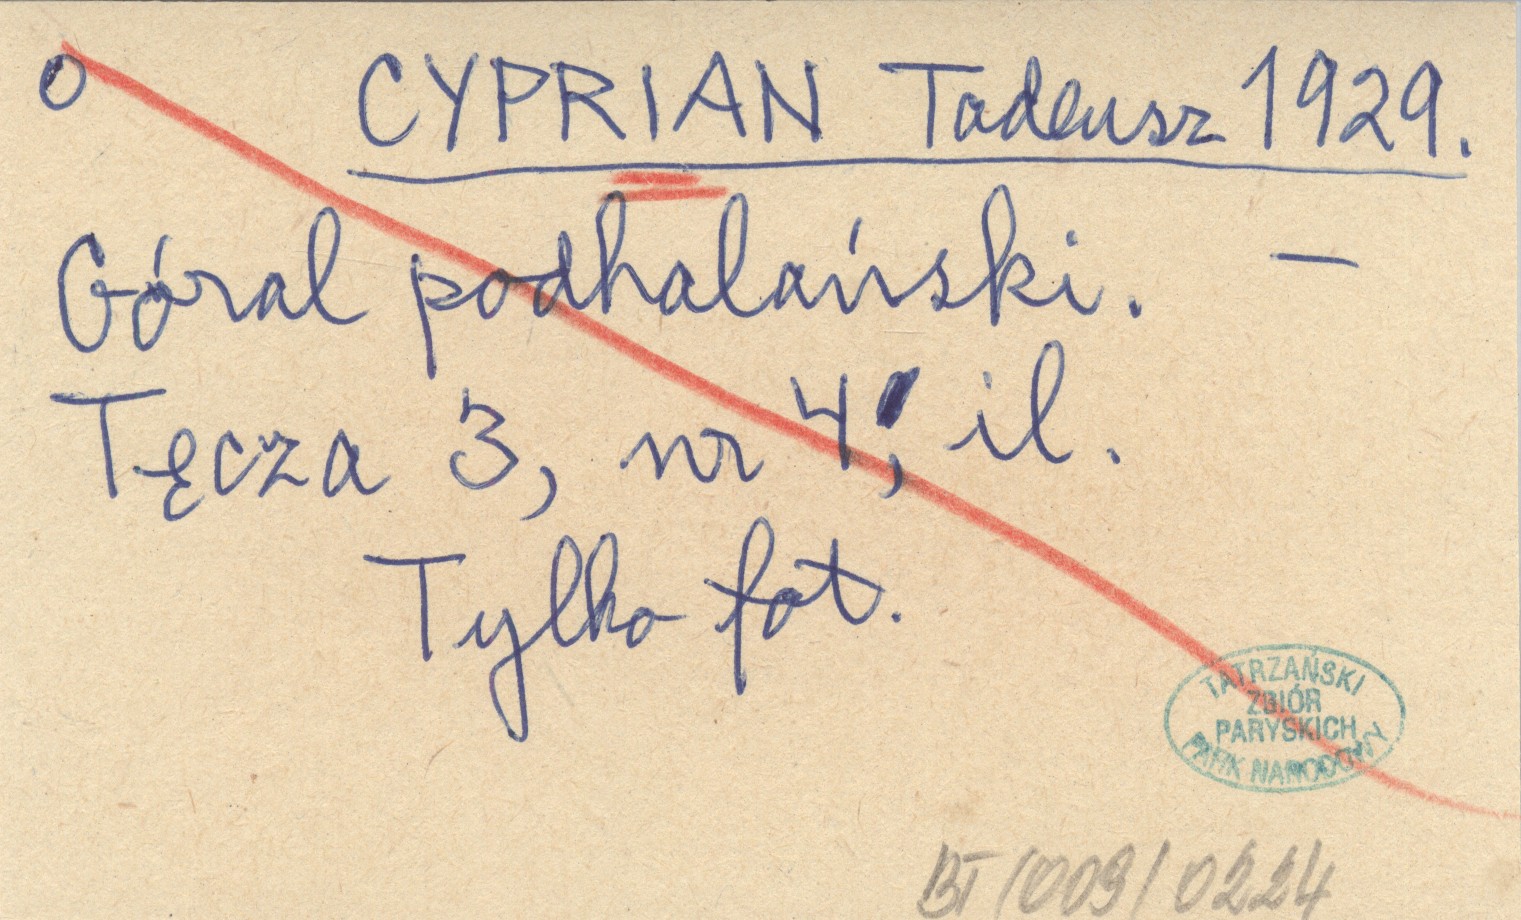 O CYPRIAN Tadeusz 1929.
Góral podhalański. —
Tęcza 3, nr 4, il.
Tylko fot.
TATRZAŃSKI
ZBIÓR
PARYSKICH
PARK NARODOWY
BT/009/0224